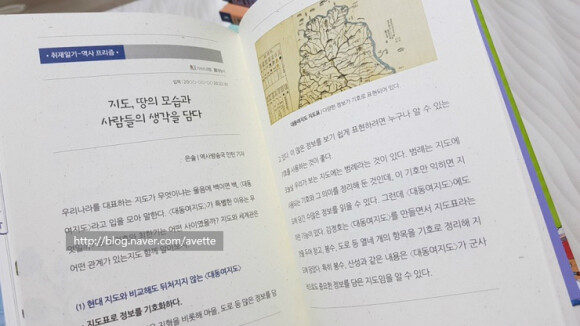 • 취재일기-역사 프리즘 •
지도, 땅의 모습과
사람들의 생각을 담다
은솔 | 역사방송국 인턴 기자
우리나라를 대표하는 지도가 무엇이냐는 물음에 백이면 백, 〈대동
여지도〉라고 입을 모아 말한다. 〈대동여지도〉가 특별한 이유는 무
어떤 사이였을까? 지도와 세계관은
어떤 관계가 있는지도 함께
http://blog.naver.com/avette
(1) 현대 지도와 비교해도 뒤처지지 않는 〈대동여지도〉
지도표로 정보를 기호화하다.
지형을 비롯해 마을, 도로 등 많은 정보를 담
대동여지도 지도표 | 다양한 정보가 기호로 표현되어 있다.
고 있다. 이 많은 정보를 보기 쉽게 표현하려면 누구나 알 수 있는
기호를 사용하는 것이 좋다.
오늘날 우리가 보는 지도에는 범례라는 것이 있다. 범례는 지도에
기호와 그 의미를 정리해 둔 것인데, 이 기호만 익히면 지
수많은 정보를 읽을 수 있다. 그런데 〈대동여지도〉에도
있다. 김정호는 〈대동여지도〉를 만들면서 지도표라는
창고, 봉수, 도로 등 열네 개의 항목을 기호로 정리해 지
특히 봉수, 산성과 같은 내용은 〈대동여지도〉가 군사
중요한 정보를 담은 지도임을 알 수 있다.